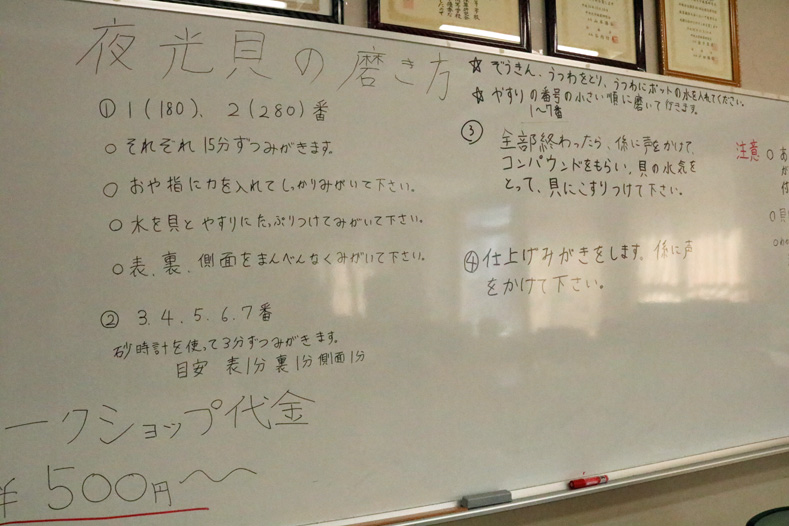 夜光貝の磨き方
① 1(180)、2(280)番
○ それぞれ15分ずつみがきます。
○ おや指に力を入れてしっかりみがいて下さい。
○ 水を貝とやすりにたっぷりつけてみがいて下さい。
○ 表、裏、側面をまんべんなくみがいて下さい。
② 3.4.5.6.7番
砂時計を使って3分ずつみがきます。
目安 表1分 裏1分 側面1分
ークショップ代金
¥500円
☆ ぞうきん、うつわをとり、うつわにポットの水を入れてください。
☆ やすりの番号の小さい順に磨いて行きます。
1〜7番
③ 全部終わったら、係に声をかけて、
コンパウンドをもらい、貝の水気を
とって、貝にこすりつけて下さい。
④ 仕上げみがきをします。係に声
をかけて下さい。
注意 ○ お
○ 貝